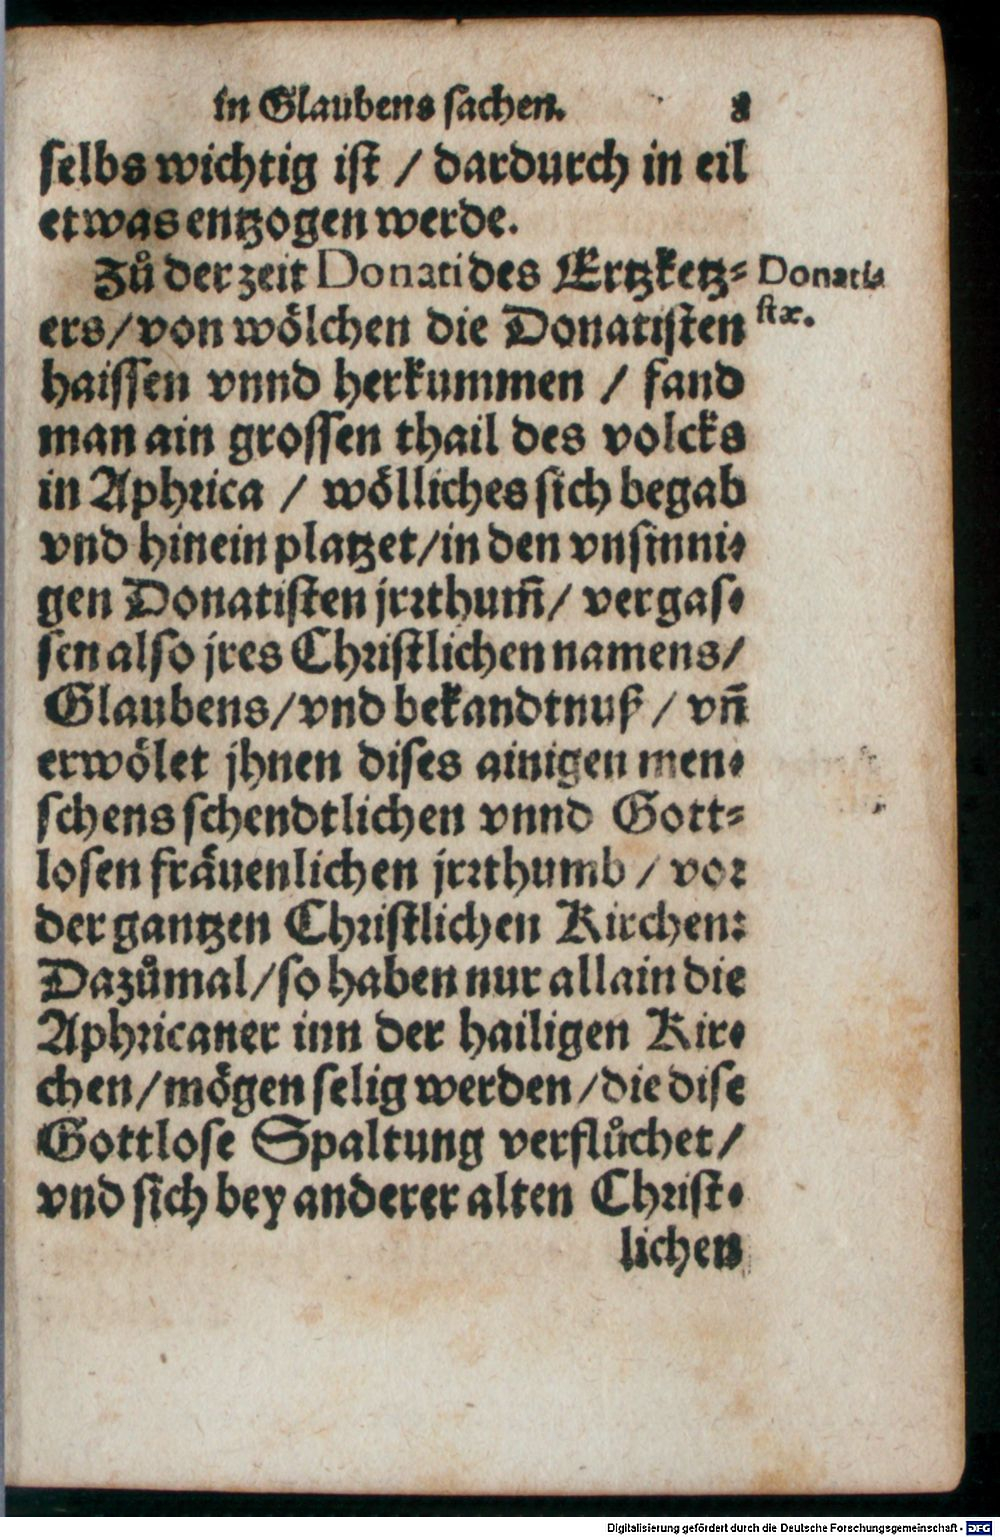 in Glaubens sachen. 8
selbs wichtig ist / dardurch in eil
etwas entzogen werde.
Zů der zeit Donati des Ertzketz-
ers / von wölchen die Donatisten
haissen vnnd herkummen / fand
man ain grossen thail des volcks
in Aphrica / wölliches sich begab
vnd hinein platzet / in den vnsinni-
gen Donatisten jrrthum̃ / vergas-
sen also jres Christlichen namens /
Glaubens / vnd bekandtnuß / vñ
erwölet jhnen dises ainigen men-
schens schendtlichen vnnd Gott-
losen fräuenlichen jrrthumb / vor
der gantzen Christlichen Kirchen:
Dazůmal / so haben nur allain die
Aphricaner inn der hailigen Kir-
chen / mögen selig werden / die dise
Gottlose Spaltung verflůchet /
vnd sich bey anderer alten Christ-
lichen
Donati-
stæ.
Digitalisierung gefördert durch die Deutsche Forschungsgemeinschaft - DFG